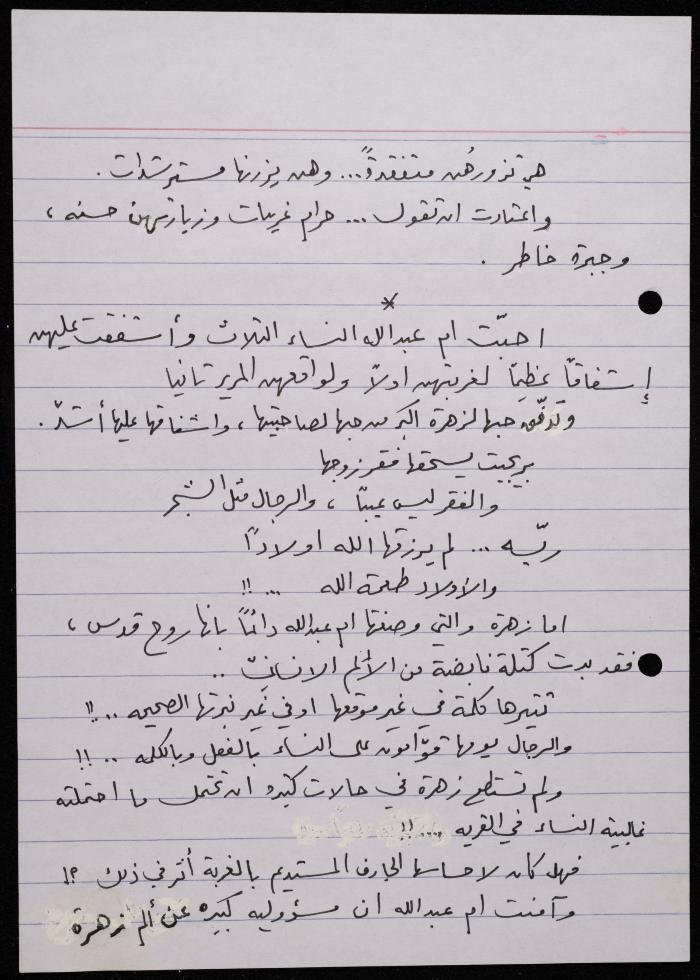 هي تزورهُن متفقدةً... وهن يزرنها مسترشدات.
واعتادت ان تقول ... حرام غريبات وزيارتهن حسنه ،
وجبرة خاطر .
*
احبّت ام عبدالله النساء الثلاث وأشفقت عليهن
إشفاقاً عظيمًا لغربتهن اولاً ولواقعهن المرير ثانيا
وتدفّق حبها لزهرة اكبر من حبها لصاحبتيها ، واشفاقها عليها أشدّ .
بريجيت يسحقها فقر زوجها
والفقر ليس عيبًا ، والرجال مثل الشجر
ريّسه ... لم يرزقها الله اولادًا
والأولاد طعمة الله ... !!
اما زهرة والتي وصفتها ام عبدالله دائمًا بانها روح قدس ،
فقد بدت كتلة نابضة من الألم الانساني ..
تثيرها كلمة في غير موقعها او في غير نبرتها الصحيحه .. !!
والرجال يومها قوّامون على النساء بالفعل وبالكلمه .. !!
ولم تستطع زهرة في حالات كثيره ان تحتمل ما احتملته
غالبية النساء في القريه ... !!
فهل كان لاحساسها الجارف المستديم بالغربة أثر في ذلك ؟!
وآمنت ام عبدالله ان مسؤوليه كبيره عن ألم زهرة